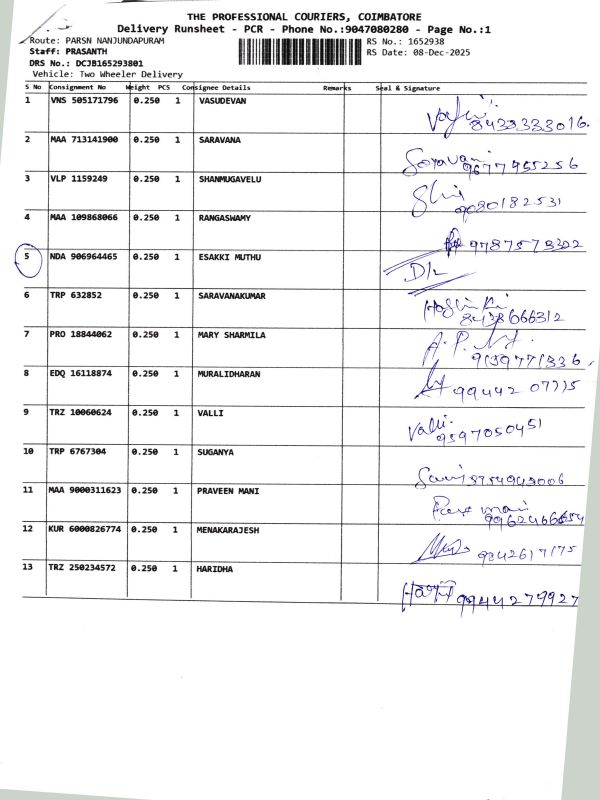 THE PROFESSIONAL COURIERS, COIMBATORE
Delivery Runsheet - PCR - Phone No.:9047080280 - Page No.:1
Route: PARSN NANJUNDAPURAM RS No.: 1652938
Staff: PRASANTH RS Date: 08-Dec-2025
DRS No.: DCJB165293801
Vehicle: Two Wheeler Delivery
S No Consignment No Weight PCS Consignee Details Remarks Seal & Signature
1 VNS 505171796 0.250 1 VASUDEVAN
8433333016.
2 MAA 713141900 0.250 1 SARAVANA
9677955256
3 VLP 1159249 0.250 1 SHANMUGAVELU
9080182531
4 MAA 109868066 0.250 1 RANGASWAMY
9787573322
5 NDA 906964465 0.250 1 ESAKKI MUTHU
D/L
6 TRP 632852 0.250 1 SARAVANAKUMAR
8438666312
7 PRO 18844062 0.250 1 MARY SHARMILA
8 EDQ 16118874 0.250 1 MURALIDHARAN
9 TRZ 10060624 0.250 1 VALLI
Valli.
9597050451
10 TRP 6767304 0.250 1 SUGANYA
11 MAA 9000311623 0.250 1 PRAVEEN MANI
mani
9962466654
12 KUR 6000826774 0.250 1 MENAKARAJESH
9842617175
13 TRZ 250234572 0.250 1 HARIDHA
9944279927